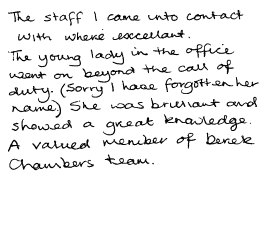 The staff I came into contact
with where excellant.
The young lady in the office
went on beyond the call of
duty. (Sorry I have forgotten her
name) She was brilliant and
showed a great knowledge.
A valued member of Derek
Chambers team.